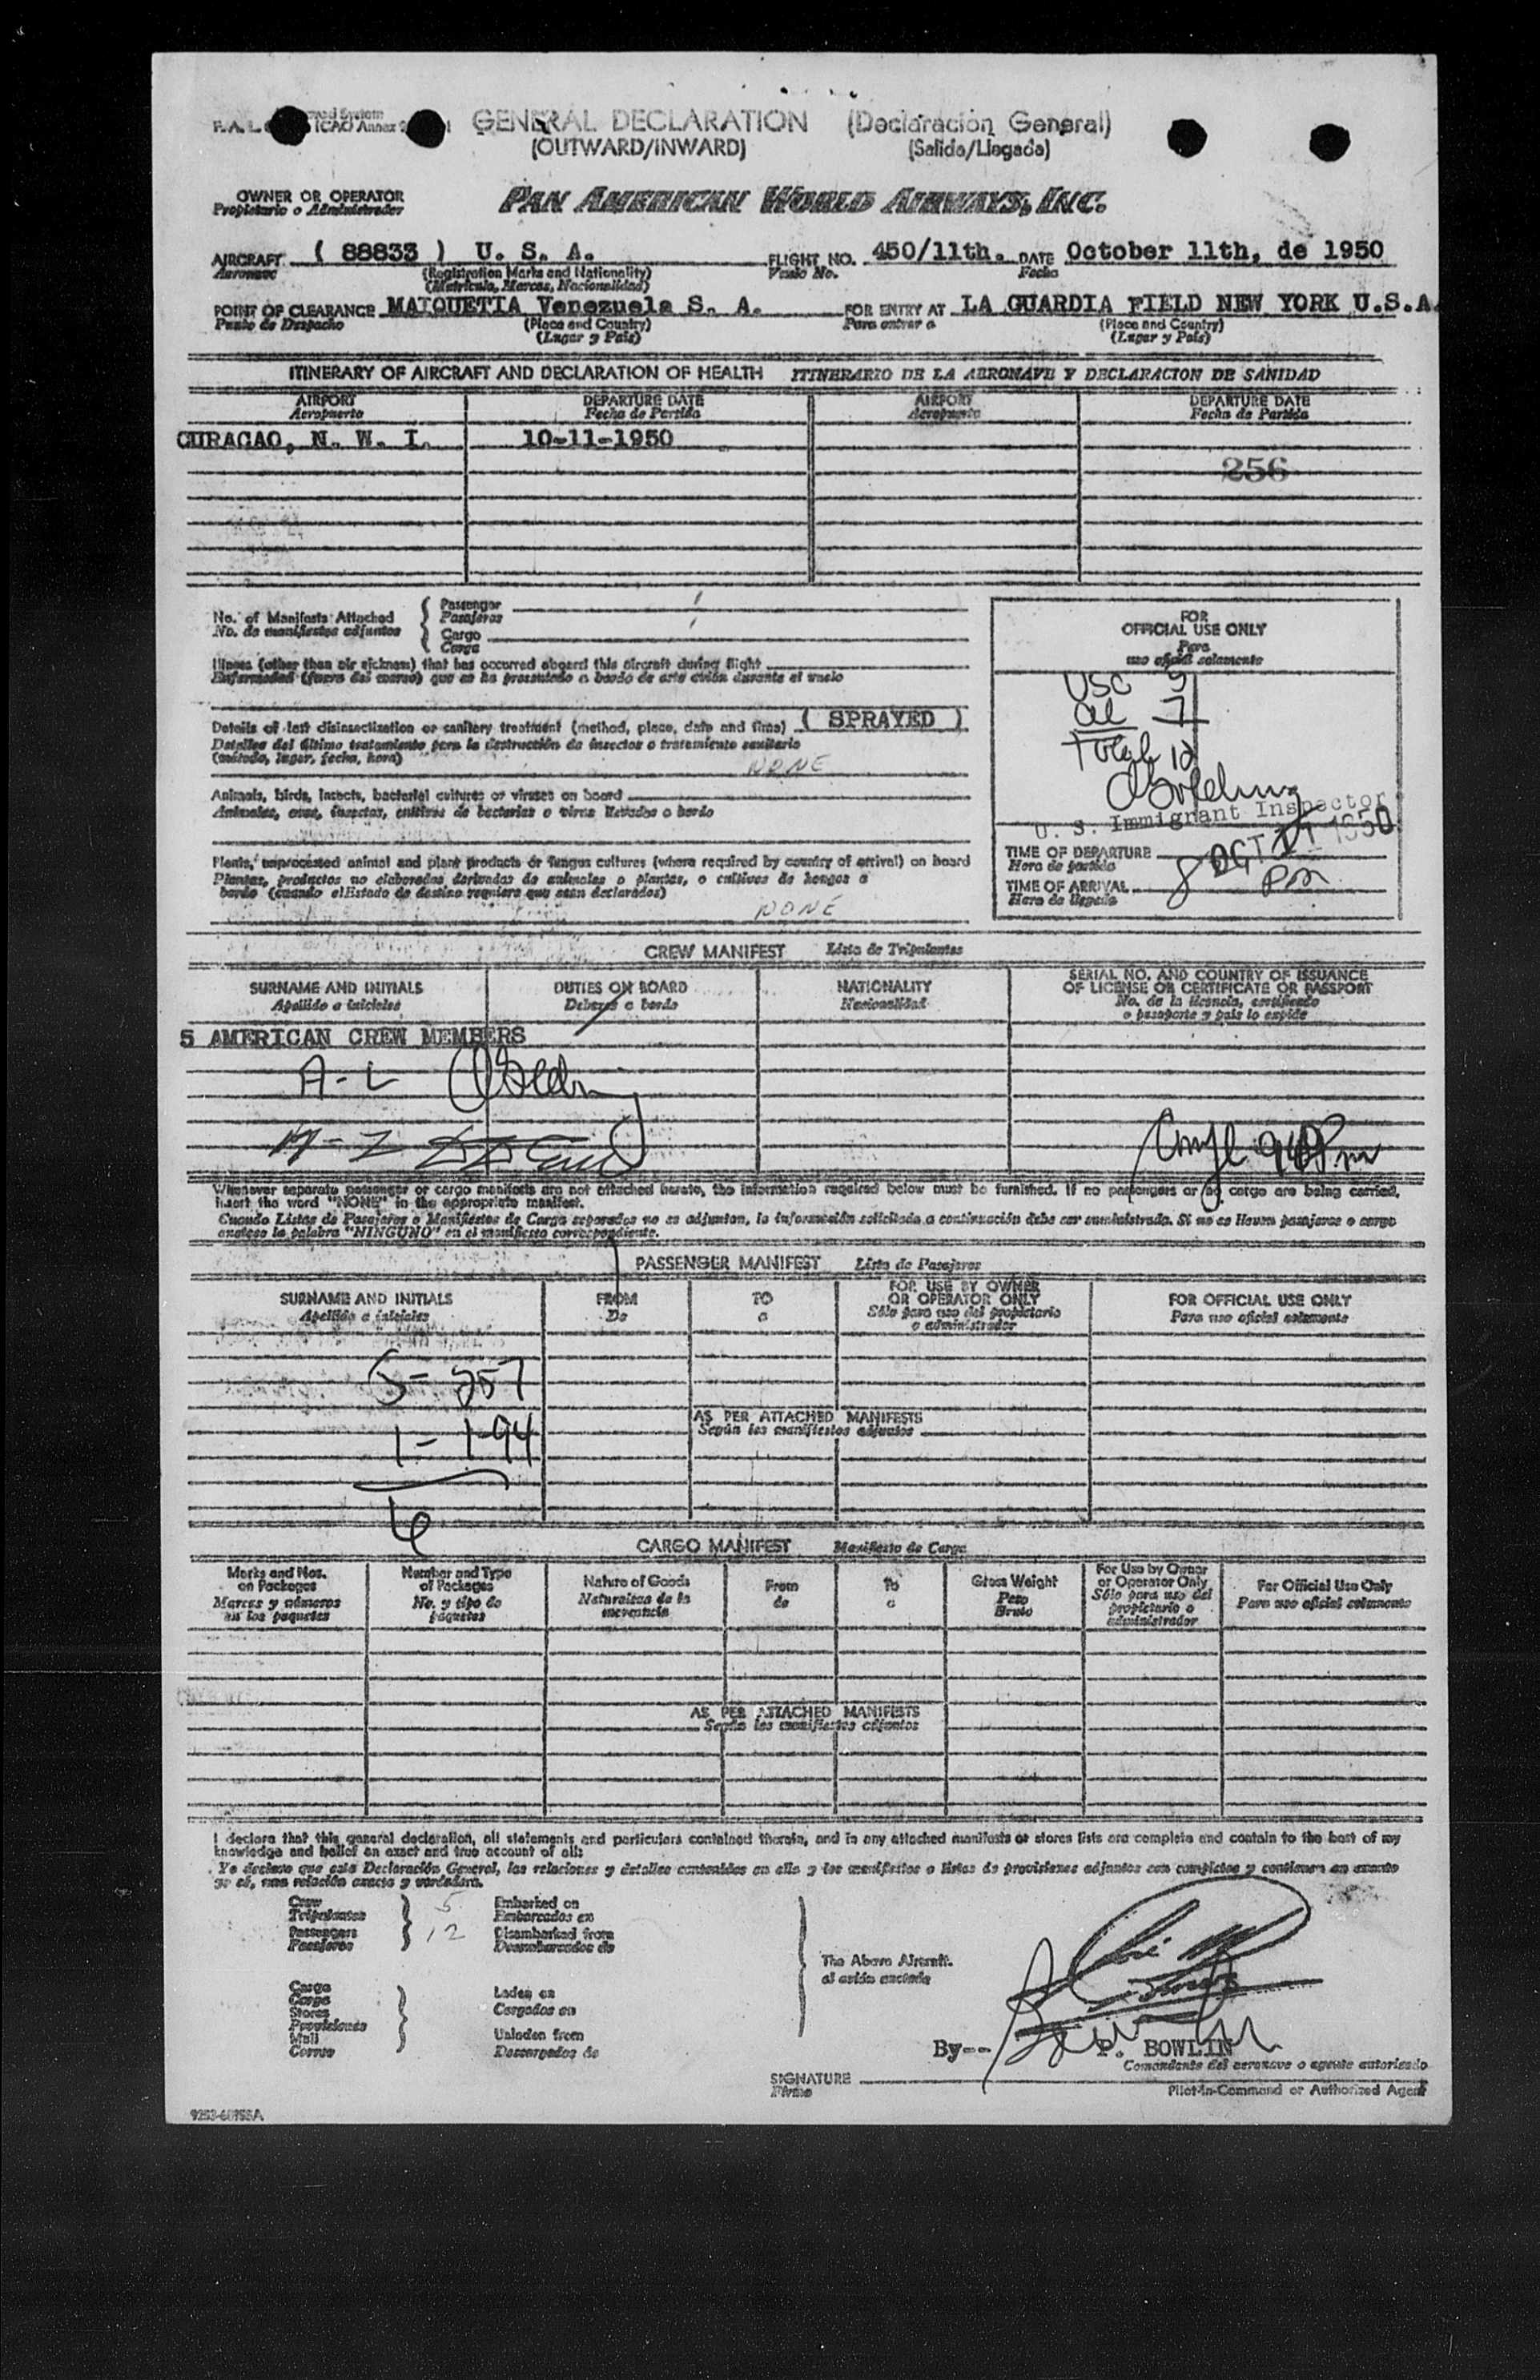 GENERAL DECLARATION (Declaración General)
(OUTWARD/INWARD) (Salida/Llegada)
OWNER OR OPERATOR PAN AMERICAN WORLD AIRWAYS, INC.
Propietario o Administrador
AIRCRAFT ( 88833 ) U. S. A. FLIGHT NO. 450/11th. DATE October 11th, de 1950
Aeronave (Registration Marks and Nationality) Vuelo No. Fecha
(Matrícula, Marcas, Nacionalidad)
POINT OF CLEARANCE MAIQUETIA Venezuela S. A. FOR ENTRY AT LA GUARDIA FIELD NEW YORK U.S.A.
Punto de Despacho (Place and Country) Para entrar a (Place and Country)
(Lugar y País) (Lugar y País)
ITINERARY OF AIRCRAFT AND DECLARATION OF HEALTH ITINERARIO DE LA AERONAVE Y DECLARACION DE SANIDAD
AIRPORT DEPARTURE DATE AIRPORT DEPARTURE DATE
Aeropuerto Fecha de Partida Aeropuerto Fecha de Partida
CURACAO, N. W. I. 10-11-1950
256
No. of Manifests Attached Passenger
No. de manifiestos adjuntos Pasajeros
Cargo
Carga
Illness (other than air sickness) that has occurred aboard this aircraft during flight
Enfermedad (fuera del mareo) que se ha presentado a bordo de este avión durante el vuelo
Details of last disinsectization or sanitary treatment (method, place, date and time) ( SPRAYED )
Detalles del último tratamiento para la destrucción de insectos o tratamiento sanitario
(método, lugar, fecha, hora)
NONE
Animals, birds, insects, bacterial cultures or viruses on board
Animales, aves, insectos, cultivos de bacterias o virus llevados a bordo
Plants, unprocessed animal and plant products or fungus cultures (where required by country of arrival) on board
Plantas, productos no elaborados derivados de animales o plantas, o cultivos de hongos a
bordo (cuando el Estado de destino requiera que sean declarados)
NONE
FOR
OFFICIAL USE ONLY
Para
uso oficial solamente
USC
al 7
Total 12
U. S. Immigrant Inspector
OCT 11 1950
TIME OF DEPARTURE
Hora de partida
TIME OF ARRIVAL 8 PM
Hora de llegada
CREW MANIFEST Lista de Tripulantes
SURNAME AND INITIALS DUTIES ON BOARD NATIONALITY SERIAL NO. AND COUNTRY OF ISSUANCE
OF LICENSE OR CERTIFICATE OR PASSPORT
Apellido e iniciales Deberes a bordo Nacionalidad No. de la licencia, certificado
o pasaporte y país lo expide
5 AMERICAN CREW MEMBERS
A-L
M-Z
Whenever separate passenger or cargo manifests are not attached hereto, the information required below must be furnished. If no passengers or no cargo are being carried,
insert the word "NONE" in the appropriate manifest.
Cuando Listas de Pasajeros o Manifiestos de Carga separados no se adjunten, la información solicitada a continuación debe ser suministrada. Si no se llevan pasajeros o carga
anótese la palabra "NINGUNO" en el manifiesto correspondiente.
PASSENGER MANIFEST Lista de Pasajeros
SURNAME AND INITIALS FROM TO FOR USE BY OWNER
OR OPERATOR ONLY FOR OFFICIAL USE ONLY
Apellido e iniciales De a Sólo para uso del propietario
o administrador Para uso oficial solamente
5 - 257
1 - 1-94
6
AS PER ATTACHED MANIFESTS
Según los manifiestos adjuntos
CARGO MANIFEST Manifiesto de Carga
Marks and Nos.
on Packages
Marcas y números
en los paquetes
Number and Type
of Packages
No. y tipo de
paquetes
Nature of Goods
Naturaleza de la
mercancía
From
de
To
a
Gross Weight
Peso
Bruto
For Use by Owner
or Operator Only
Sólo para uso del
propietario o
administrador
For Official Use Only
Para uso oficial solamente
AS PER ATTACHED MANIFESTS
Según los manifiestos adjuntos
I declare that this general declaration, all statements and particulars contained therein, and in any attached manifests or stores lists are complete and contain to the best of my
knowledge and belief an exact and true account of all:
Yo declaro que esta Declaración General, las relaciones y detalles contenidos en ella y los manifiestos o listas de provisiones adjuntos son completos y contienen en cuanto
yo sé, una relación exacta y verdadera.
Crew 5 Embarked on
Tripulantes Embarcados en
Passengers 12 Disembarked from
Pasajeros Desembarcados de
The Above Aircraft.
al avión anotado
Cargo
Carga
Stores
Provisiones
Mail
Correo
Laden on
Cargados en
Unladen from
Descargados de
By-- P. BOWLIN
Comandante del aeronave o agente autorizado
SIGNATURE
Firma
Pilot-in-Command or Authorized Agent